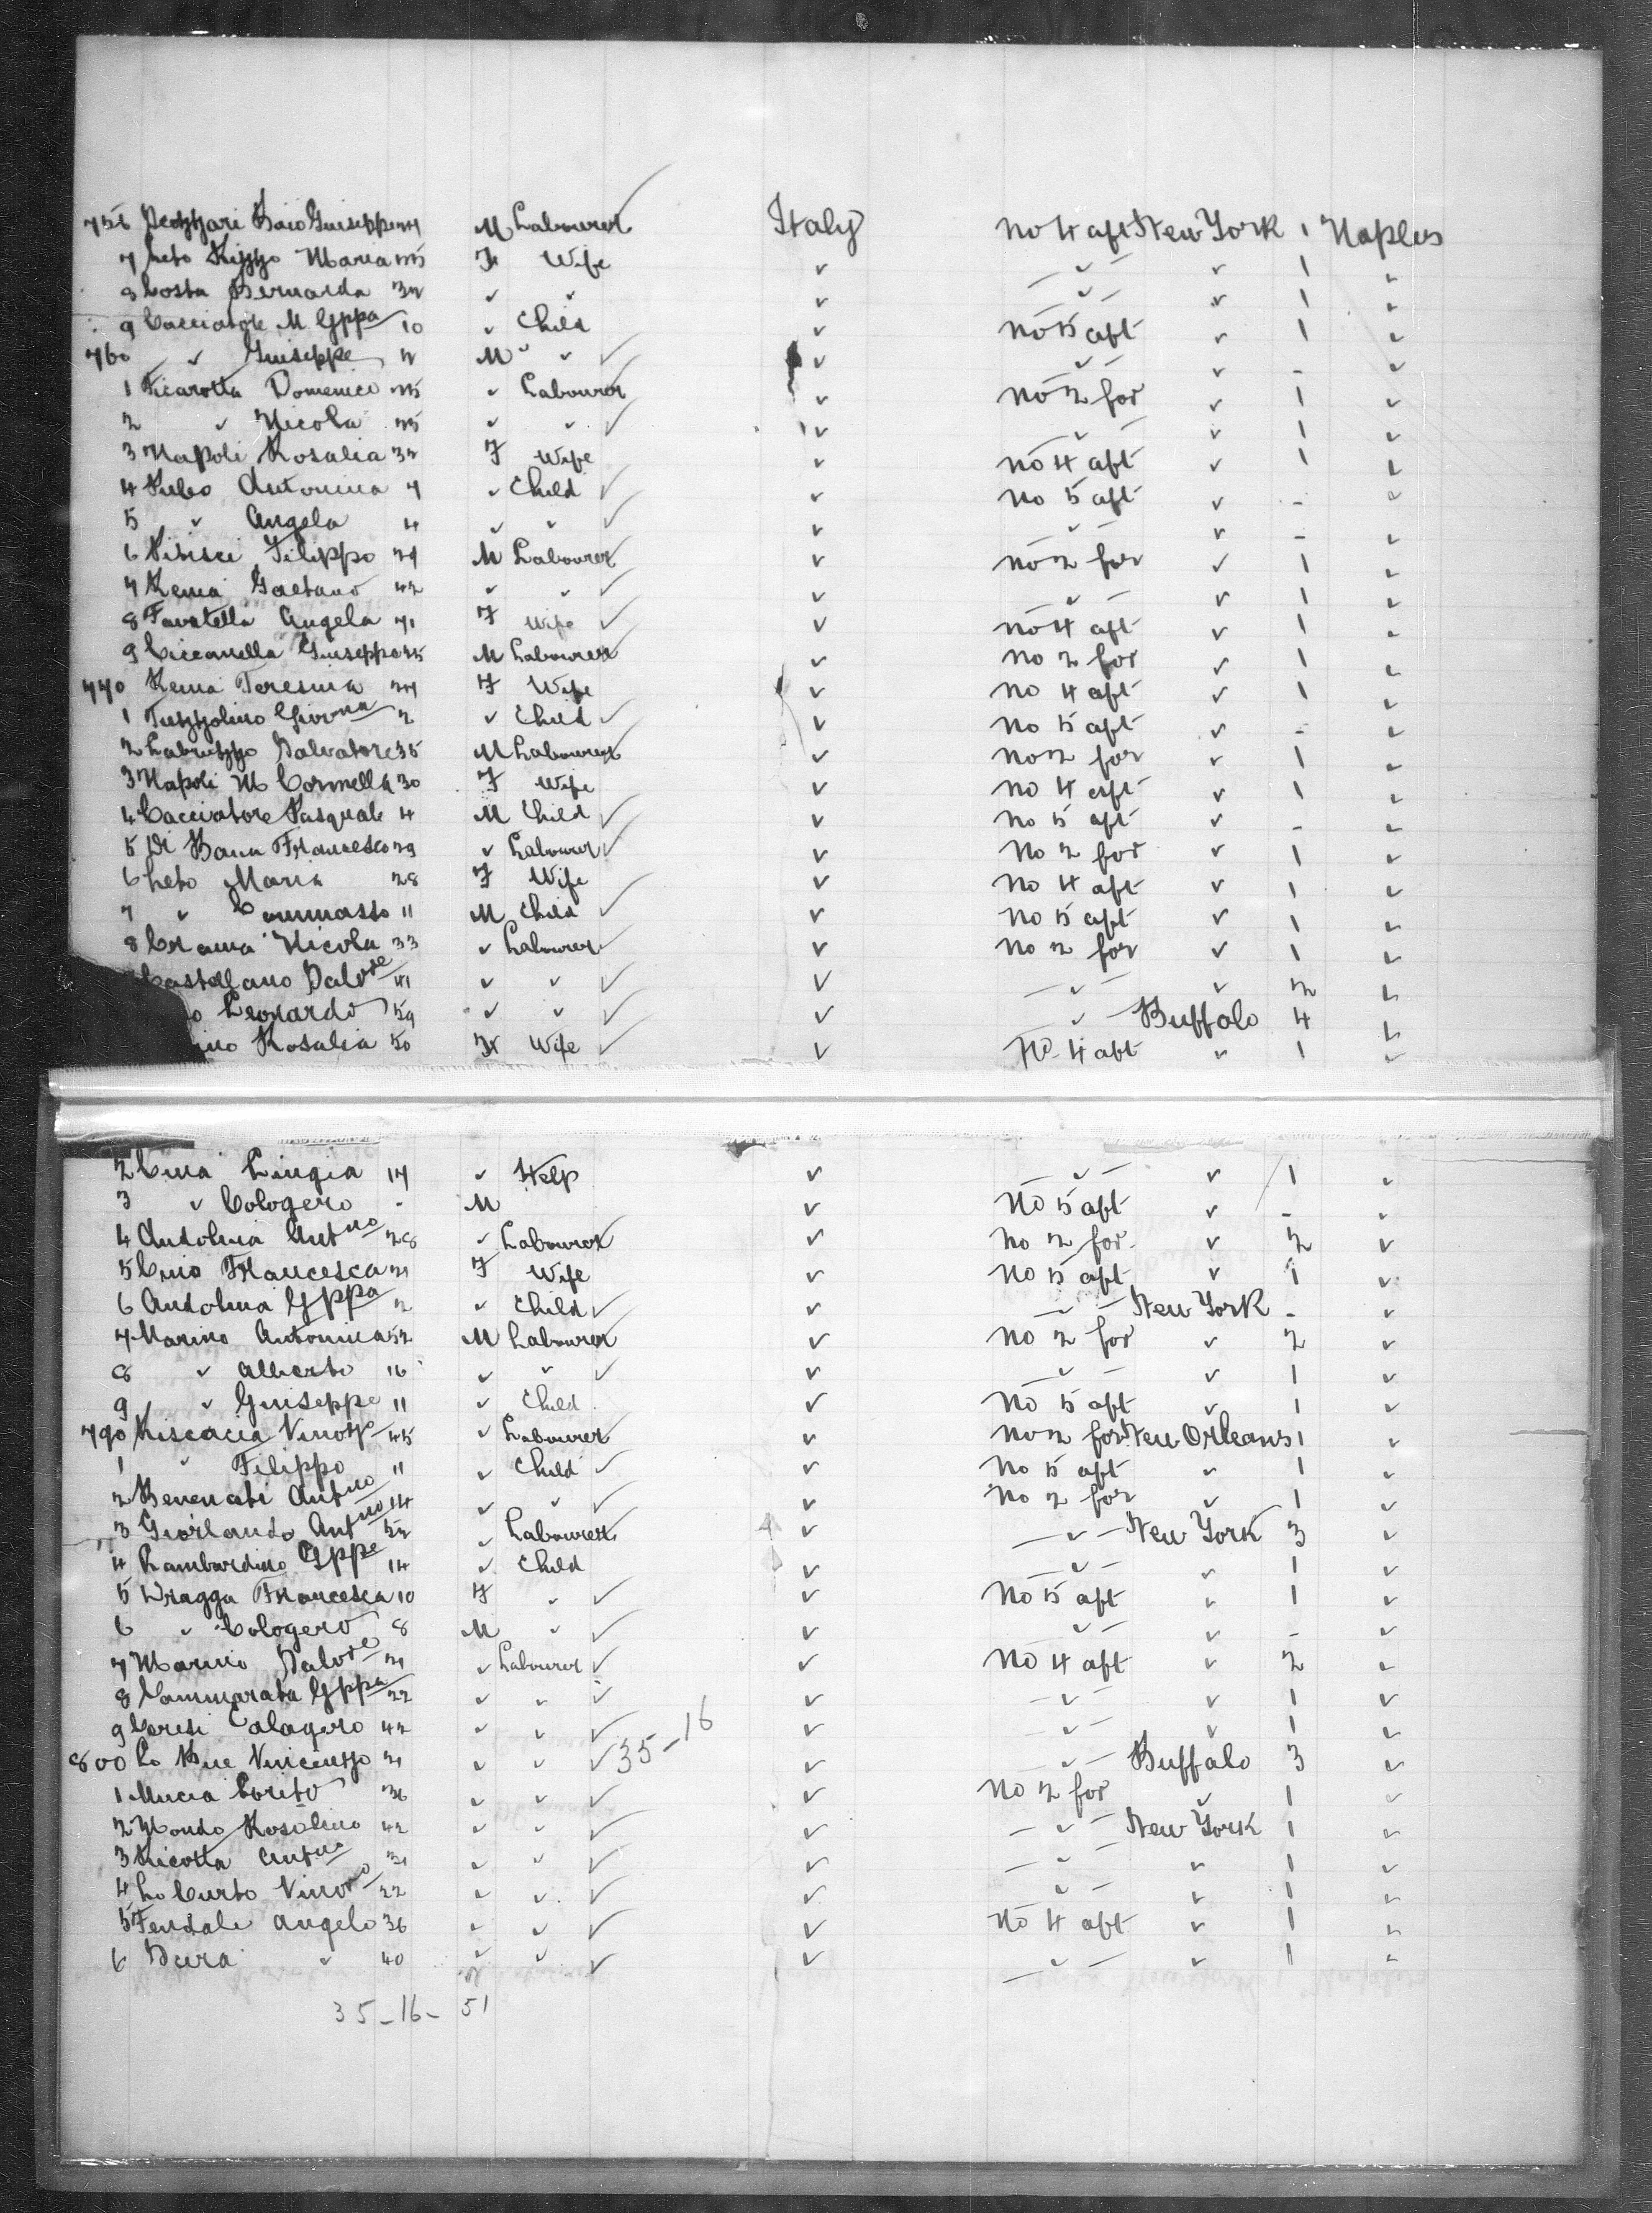 756 Baio Guiseppe M Labourer Italy No 4 aft New York 1 Naples
7 Leto Rizzo Maria F Wife ✓ — ✓ — ✓ 1 ✓
8 Costa Bernarda 32 ✓ ✓ ✓ ✓ ✓ 1 ✓
9 Cacciatore M. Gppa 10 ✓ Child ✓ No 5 aft ✓ 1 ✓
760 ✓ Guiseppe M ✓ ✓ ✓ ✓ ✓ - ✓
1 Ficarotta Domenico ✓ Labourer ✓ No 2 for ✓ 1 ✓
2 ✓ Nicola ✓ ✓ ✓ ✓ ✓ 1 ✓
3 Napoli Rosalia 32 F Wife ✓ No 4 aft ✓ 1 ✓
4 Antonina 7 ✓ Child ✓ No 5 aft ✓ - ✓
5 ✓ Angela 4 ✓ ✓ ✓ ✓ ✓ - ✓
6 Filippo 29 M Labourer ✓ No 2 for ✓ 1 ✓
7 Gaetano 42 ✓ ✓ ✓ — ✓ — ✓ 1 ✓
8 Favatella Angela F Wife ✓ No 4 aft ✓ 1 ✓
9 Ciccarella Guiseppe M Labourer ✓ No 2 for ✓ 1 ✓
770 Teresina F Wife ✓ No 4 aft ✓ 1 ✓
1 Tuzzolino Giovna 2 ✓ Child ✓ No 5 aft ✓ - ✓
2 Labruzzo Salvatore 35 M Labourer ✓ No 2 for ✓ 1 ✓
3 Napoli M Carmella 30 F Wife ✓ No 4 aft ✓ 1 ✓
4 Cacciatore Pasquale 4 M Child ✓ No 5 aft ✓ - ✓
5 Di Francesco 29 ✓ Labourer ✓ No 2 for ✓ 1 ✓
6 Leto Maria 28 F Wife ✓ No 4 aft ✓ 1 ✓
7 ✓ 11 M Child ✓ No 5 aft ✓ 1 ✓
8 Nicola 33 ✓ Labourer ✓ No 2 for ✓ 1 ✓
Castellano Salvre 41 ✓ ✓ ✓ — ✓ — ✓ 2 ✓
o Leonardo 59 ✓ ✓ ✓ — ✓ — Buffalo 4 ✓
ino Rosalia 50 F Wife ✓ No 4 aft ✓ 1 ✓
2 Cina 17 ✓ Help ✓ — ✓ — ✓ 1 ✓
3 ✓ Cologero - M ✓ No 5 aft ✓ - ✓
4 Andolina Antno 28 ✓ Labourer ✓ No 2 for ✓ 2 ✓
5 Francesca 21 F Wife ✓ No 5 aft ✓ 1 ✓
6 Andolina Gppa 2 ✓ Child ✓ — ✓ — New York - ✓
7 Marino Antonina 52 M Labourer ✓ No 2 for ✓ 2 ✓
8 ✓ Alberto 16 ✓ ✓ ✓ — ✓ — ✓ 1 ✓
9 ✓ Guiseppe 11 ✓ Child ✓ No 5 aft ✓ 1 ✓
790 45 ✓ Labourer ✓ No 2 for New Orleans 1 ✓
1 ✓ Filippo 11 ✓ Child ✓ No 5 aft ✓ 1 ✓
2 Benenati Antno 14 ✓ ✓ ✓ No 2 for ✓ 1 ✓
3 Giorlando Antno 52 ✓ Labourer ✓ — ✓ — New York 3 ✓
4 Lambardino Gppe 14 ✓ Child ✓ — ✓ — ✓ 1 ✓
5 Dragga Francesca 10 F ✓ ✓ No 5 aft ✓ 1 ✓
6 ✓ Cologero 8 M ✓ ✓ — ✓ — ✓ - ✓
7 Marino Salvre 21 ✓ Labourer ✓ No 4 aft ✓ 2 ✓
8 Cammarata Gppa 22 ✓ ✓ ✓ — ✓ — ✓ 1 ✓
9 Calogero 42 ✓ ✓ ✓ 35-16 ✓ — ✓ — ✓ 1 ✓
800 Lo Vincenzo 21 ✓ ✓ ✓ — ✓ — Buffalo 3 ✓
1 36 ✓ ✓ ✓ No 2 for ✓ 1 ✓
2 Mondo Rosolino 42 ✓ ✓ ✓ — ✓ — New York 1 ✓
3 Ricotta Antno 21 ✓ ✓ ✓ — ✓ — ✓ 1 ✓
4 Lo Curto 22 ✓ ✓ ✓ — ✓ — ✓ 1 ✓
5 Angelo 36 ✓ ✓ ✓ No 4 aft ✓ 1 ✓
6 ✓ 40 ✓ ✓ ✓ — ✓ — ✓ 1 ✓
35-16- 51